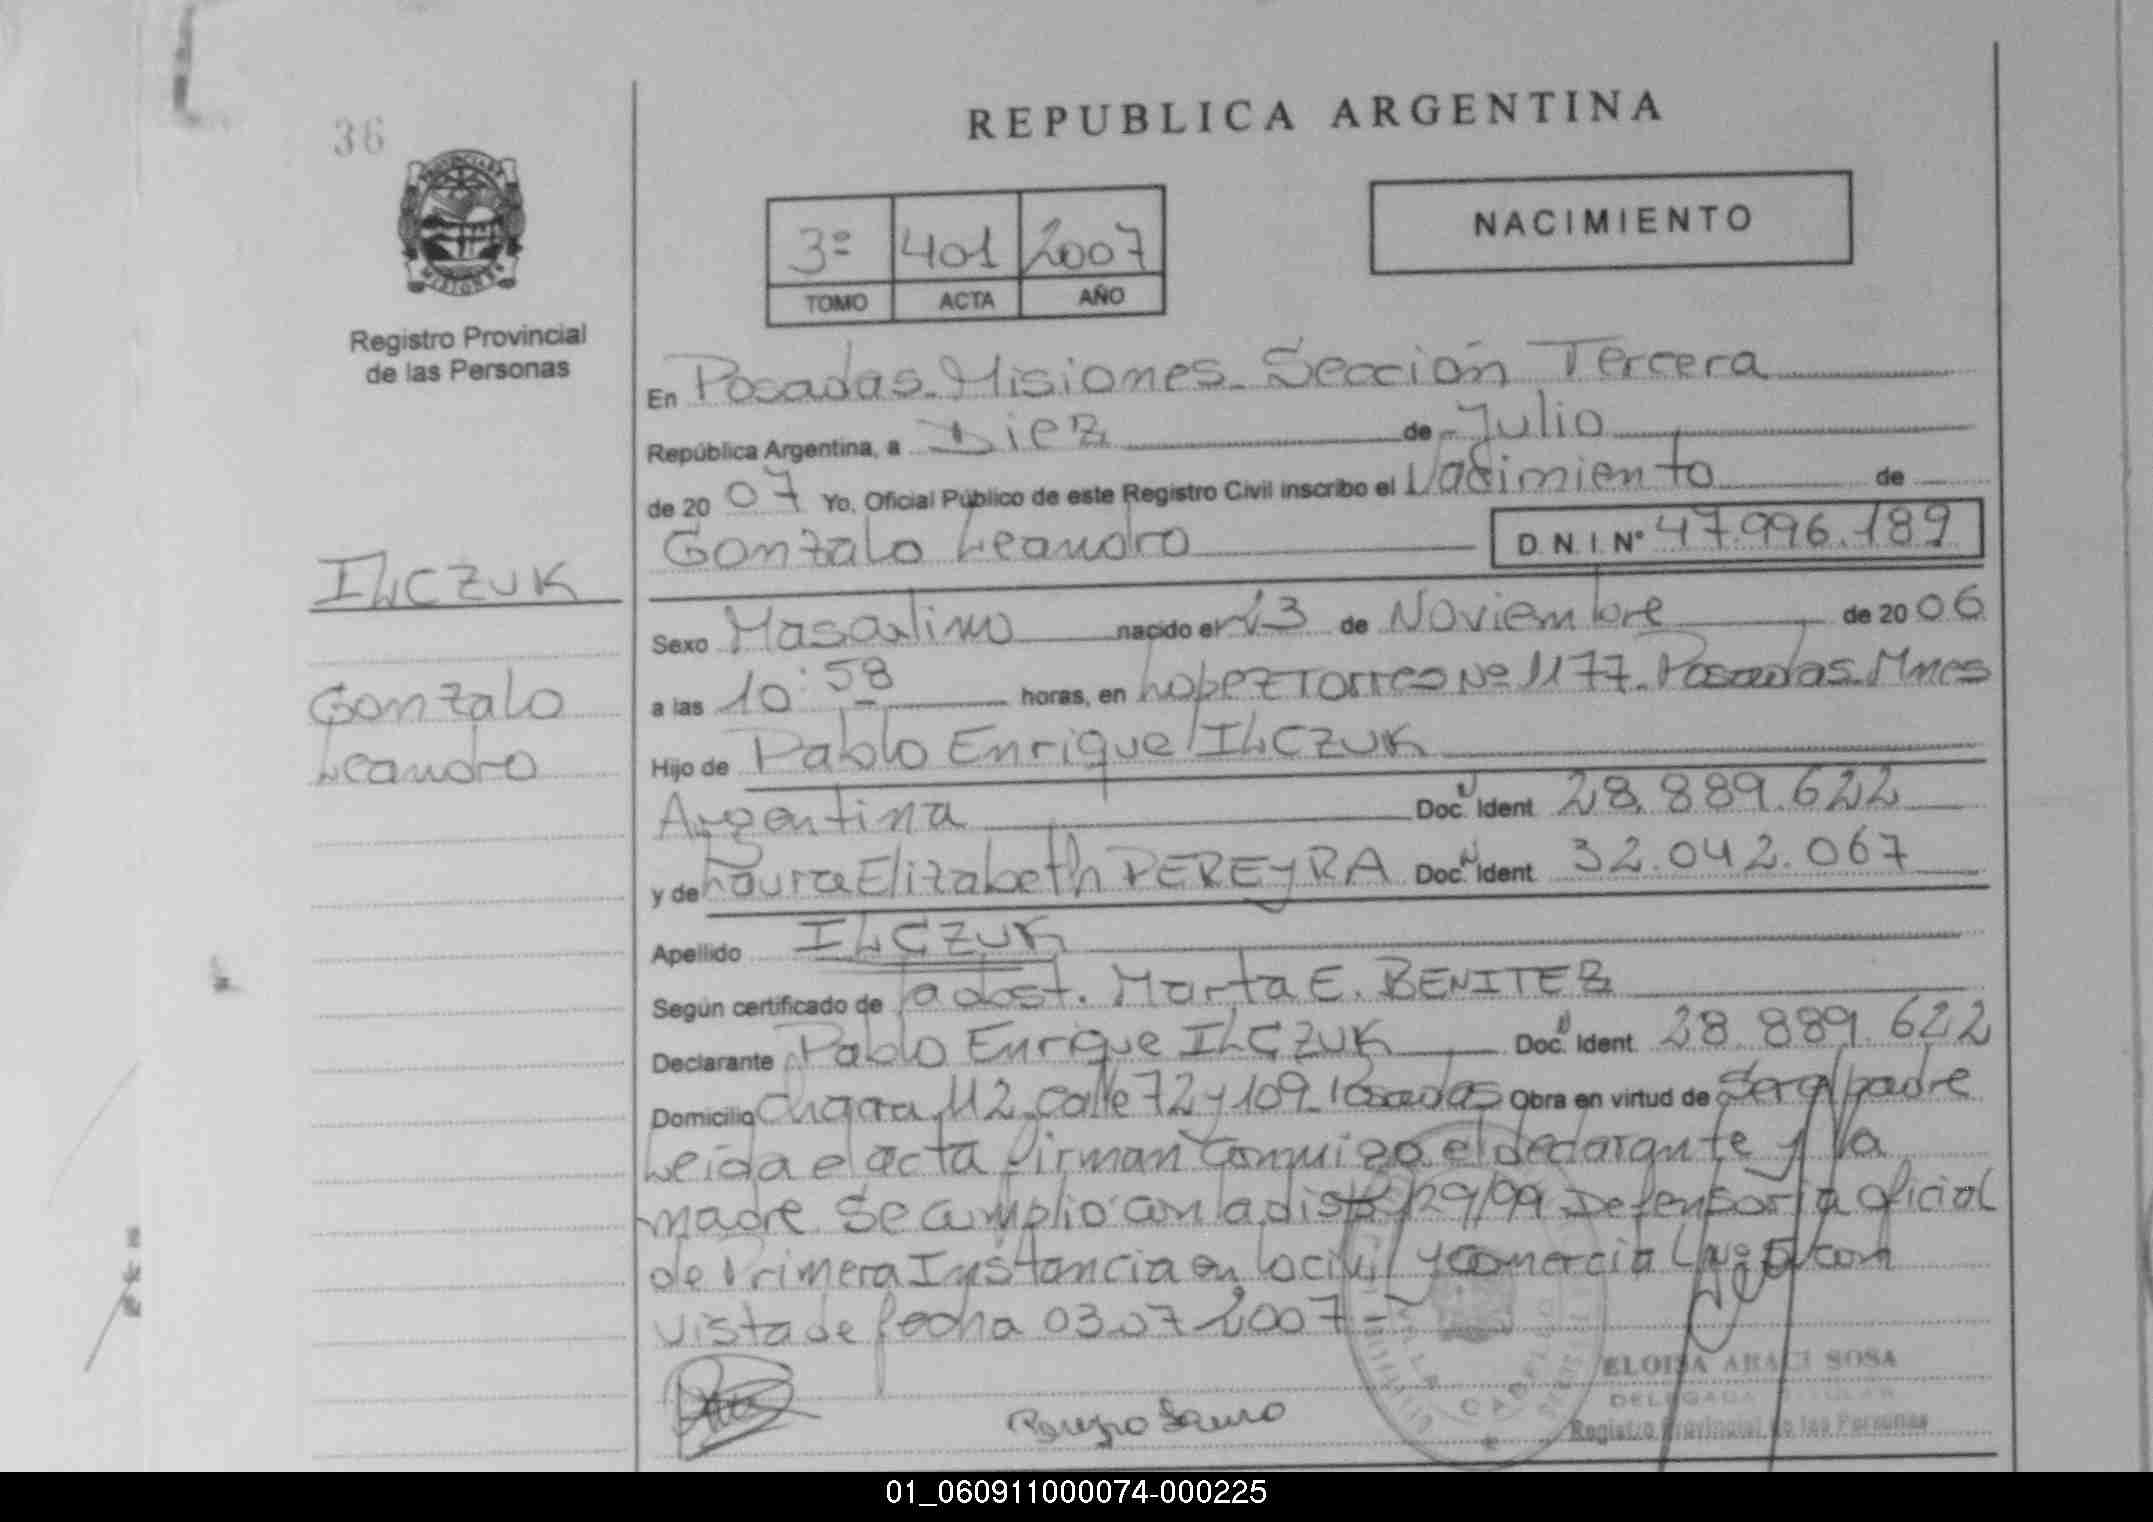 36
REPUBLICA ARGENTINA
NACIMIENTO
3º 401 2007
TOMO ACTA AÑO
Registro Provincial
de las Personas
En Posadas. Misiones. Sección Tercera
República Argentina, a Diez de Julio
de 2007 Yo, Oficial Público de este Registro Civil inscribo el Nacimiento de
Gonzalo Leandro D N I. Nº 47.996.189
ILCZUK
Gonzalo
Leandro
Sexo Masculino nacido el 13 de Noviembre de 2006
a las 10:58 horas, en Lopez Torres Nº 1177. Posadas. Mnes
Hijo de Pablo Enrique ILCZUK
Argentina Doc. Ident 28.889.622
y de Laura Elizabeth PEREYRA Doc. Ident 32.042.067
Apellido ILCZUK
Según certificado de la obst. Marta E. BENITEZ
Declarante Pablo Enrique ILCZUK Doc. Ident 28.889.622
Domicilio Chacra 112. calle 72 y 109. Posadas Obra en virtud de Ser el padre
Leida el acta firman conmigo el declarante y la
madre. Se cumplio con la disp 29/99 Defensoria Oficial
de Primera Instancia en lo civil y comercial Nº 5 con
vista de fecha 03.07.2007 -
ELOISA ARACI SOSA
DELEGADA TITULAR
Registro Provincial de las Personas
01_060911000074-000225